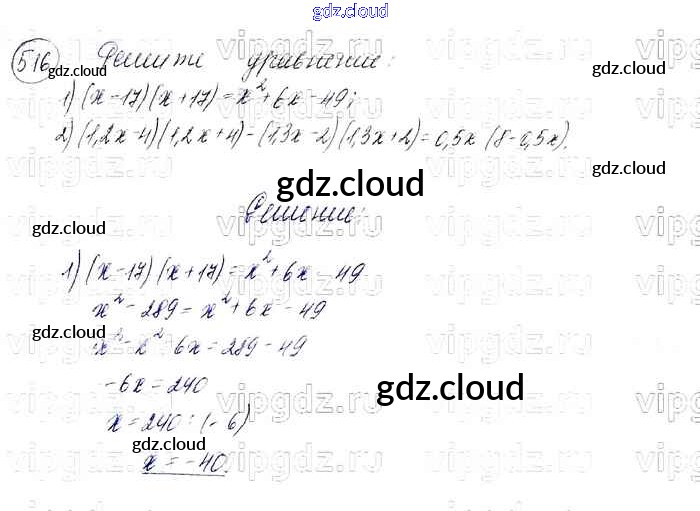 gdz.cloud
516 Решите уравнение:
gdz.cloud
1) (x-17)(x+17)=x²+6x-49;
gdz.cloud
2) (1,2x-4)(1,2x+4)-(1,3x-2)(1,3x+2)=0,5x(8-0,5x).
gdz.cloud
gdz.cloud
Решение:
gdz.cloud
gdz.cloud
1) (x-17)(x+17)=x²+6x-49
x²-289=x²+6x-49
gdz.cloud
x²-x²-6x=289-49
-6x=240
gdz.cloud
x=240:(-6)
gdz.cloud
x=-40.
gdz.cloud
vipgdz.ru